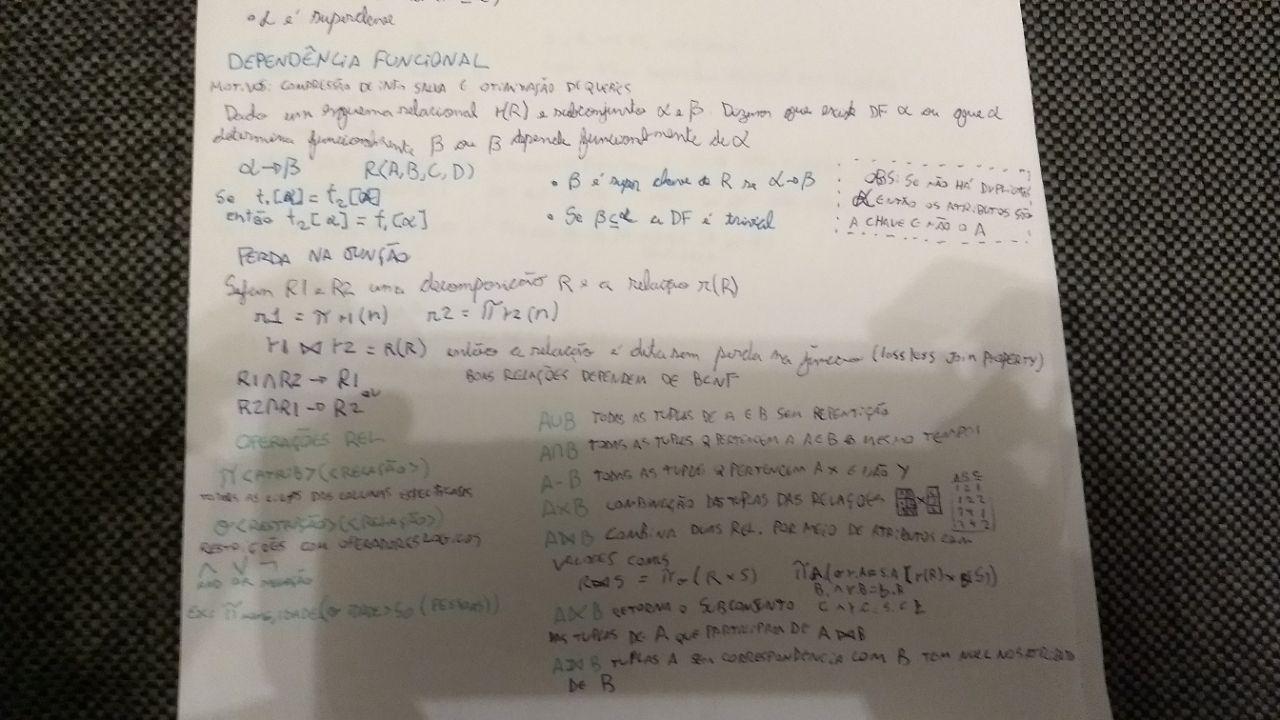 • α é superchave
DEPENDÊNCIA FUNCIONAL
MOTIVOS: COMPRESSÃO DE INFO SALVA E OTIMIZAÇÃO DE QUERIES
Dado um esquema relacional r(R) e subconjunto α e β. Dizemos que existe DF α ou que α
determina funcionalmente β ou β depende funcionalmente de α
α→β R(A,B,C,D)
Se t₁[α] = t₂[α]
então t₂[α] = t₁[α]
• β é super chave de R se α→β
• Se β⊆α a DF é trivial
OBS: SE NÃO HÁ DUPLICATAS
α ENTÃO OS ATRIBUTOS SÃO
A CHAVE E NÃO O A
PERDA NA JUNÇÃO
Sejam R1 e R2 uma decomposição R e a relação r(R)
r1 = π r1(r) r2 = π r2(r)
r1 ⋈ r2 = R(R) então a relação é dita sem perda na junção (lossless JOIN PROPERTY)
R1∩R2 → R1 ou
R2∩R1 → R2
BOAS RELAÇÕES DEPENDEM DE BCNF
OPERAÇÕES REL
π<ATRIB>(<RELAÇÃO>)
TODAS AS DAS COLUNAS ESPECIFICADAS
σ<RESTRIÇÃO>(<RELAÇÃO>)
RESTRIÇÕES COM OPERADORES LOGICOS
∧ ∨ ¬
AND OR NEGAÇÃO
EX: π nome, IDADE(σ IDADE>50 (PESSOAS))
A∪B TODAS AS TUPLAS DE A E B SEM REPENTIÇÃO
A∩B TODAS AS TUPLAS Q PERTENCEM A A E B AO MESMO TEMPO
A-B TODAS AS TUPLAS Q PERTENCEM A X E NÃO Y
A×B COMBINAÇÃO DAS TUPLAS DAS RELAÇÕES
A⋈B COMBINA DUAS REL. POR MEIO DE ATRIBUTOS COM
VALORES COMUNS
R⋈S = πσ(R×S) πA(σ r.A=S.A [r(R)× (S)]
B, ∧ r.B=b.B
C ∧ r.C, S.C
A⋉B RETORNA O SUBCONJUNTO
DAS TUPLAS DE A QUE PARTICIPAM DE A⋈B
A⟕B TUPLAS A SEM CORRESPONDENCIA COM B TEM NULL NOS ATRIBUTO
DE B